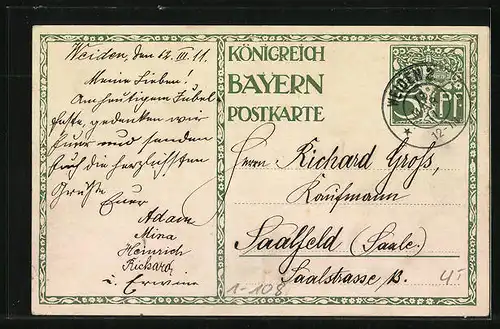 Weiden, den 12. III. 11.
Meine Lieben!
Am heutigen Jubel
feste, gedenken wir
Euer und senden
Euch die herzlichsten
Grüße
Euer
Adam
Mina
Heinrich
Richard
u. Erwin
KÖNIGREICH
BAYERN
POSTKARTE
5 Pf
WEIDEN 2
12
Herrn Richard Groß,
Kaufmann
Saalfeld (Saale.)
Saalstrasse 13.
1-108